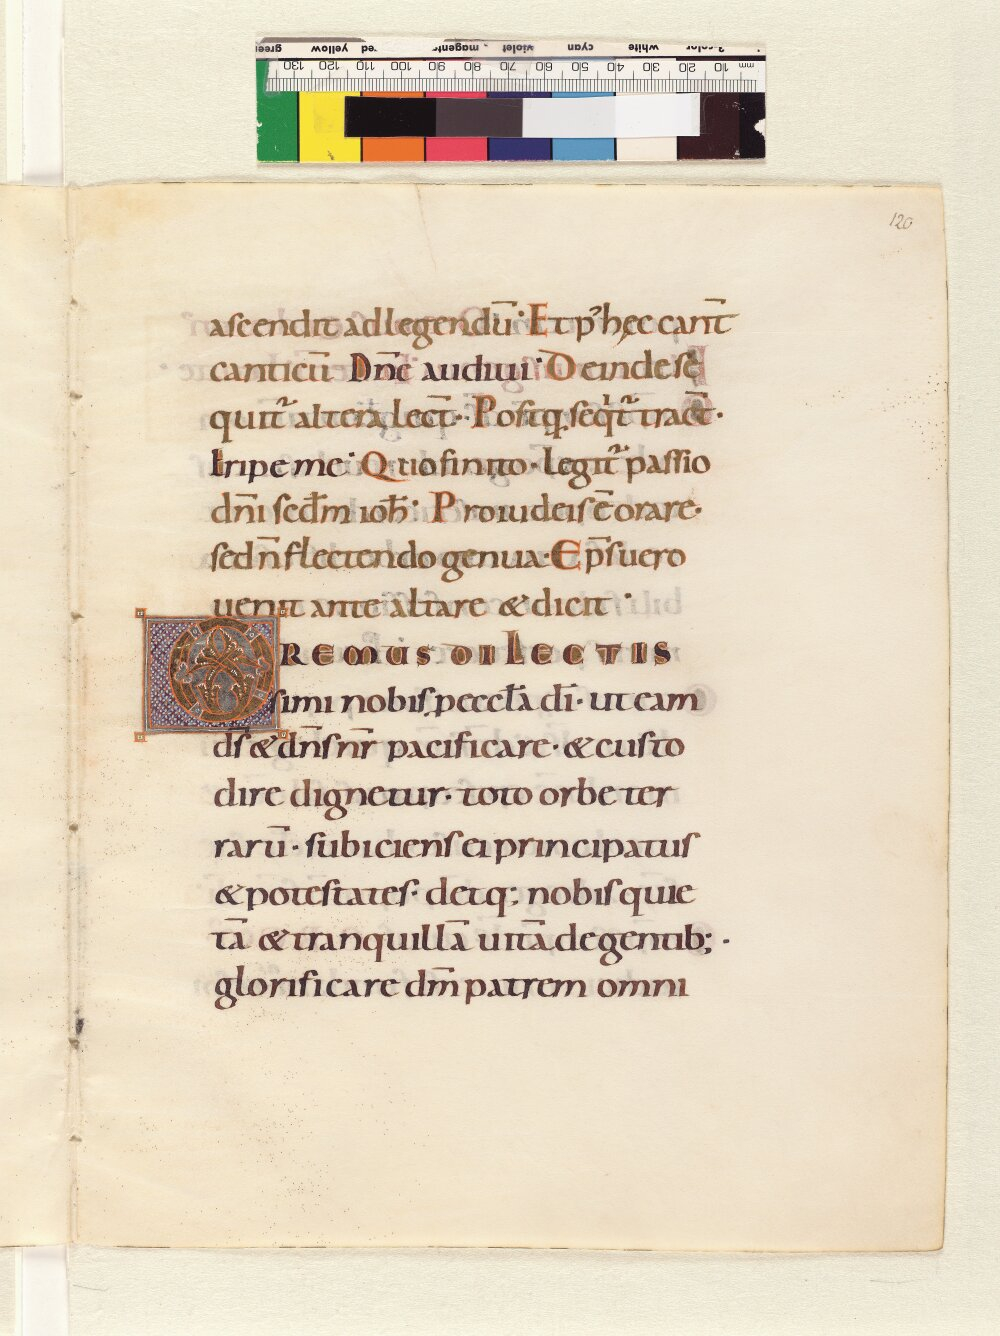 green yellow red magenta violet cyan white 3-color
mm 10 20 30 40 50 60 70 80 90 100 110 120 130
120
ascendit ad legendū· Et pꝰ hęc cant̄
canticū Dn̄e audiui· Deinde se
quit᷑ altera lect̄· Postq̣ seq̄t᷑ tract̄·
Eripe me· Quo finito· legit᷑ passio
dn̄i scđm ioh̄· Pro iudeis ē orare·
sed n̄ flectendo genua· Ep̄s uero
uenit ante altare & dicit·
OREMUS DILECTIS
simi nobis p eccl̄a dī· ut eam
d̄s & dn̄s nr̄ pacificare· & custo
dire dignetur· toto orbe ter
rarū· subiciens ei principatus
& potestates· detq; nobis quie
tā & tranquillā uitā degentib;·
glorificare dm̄ patrem omni